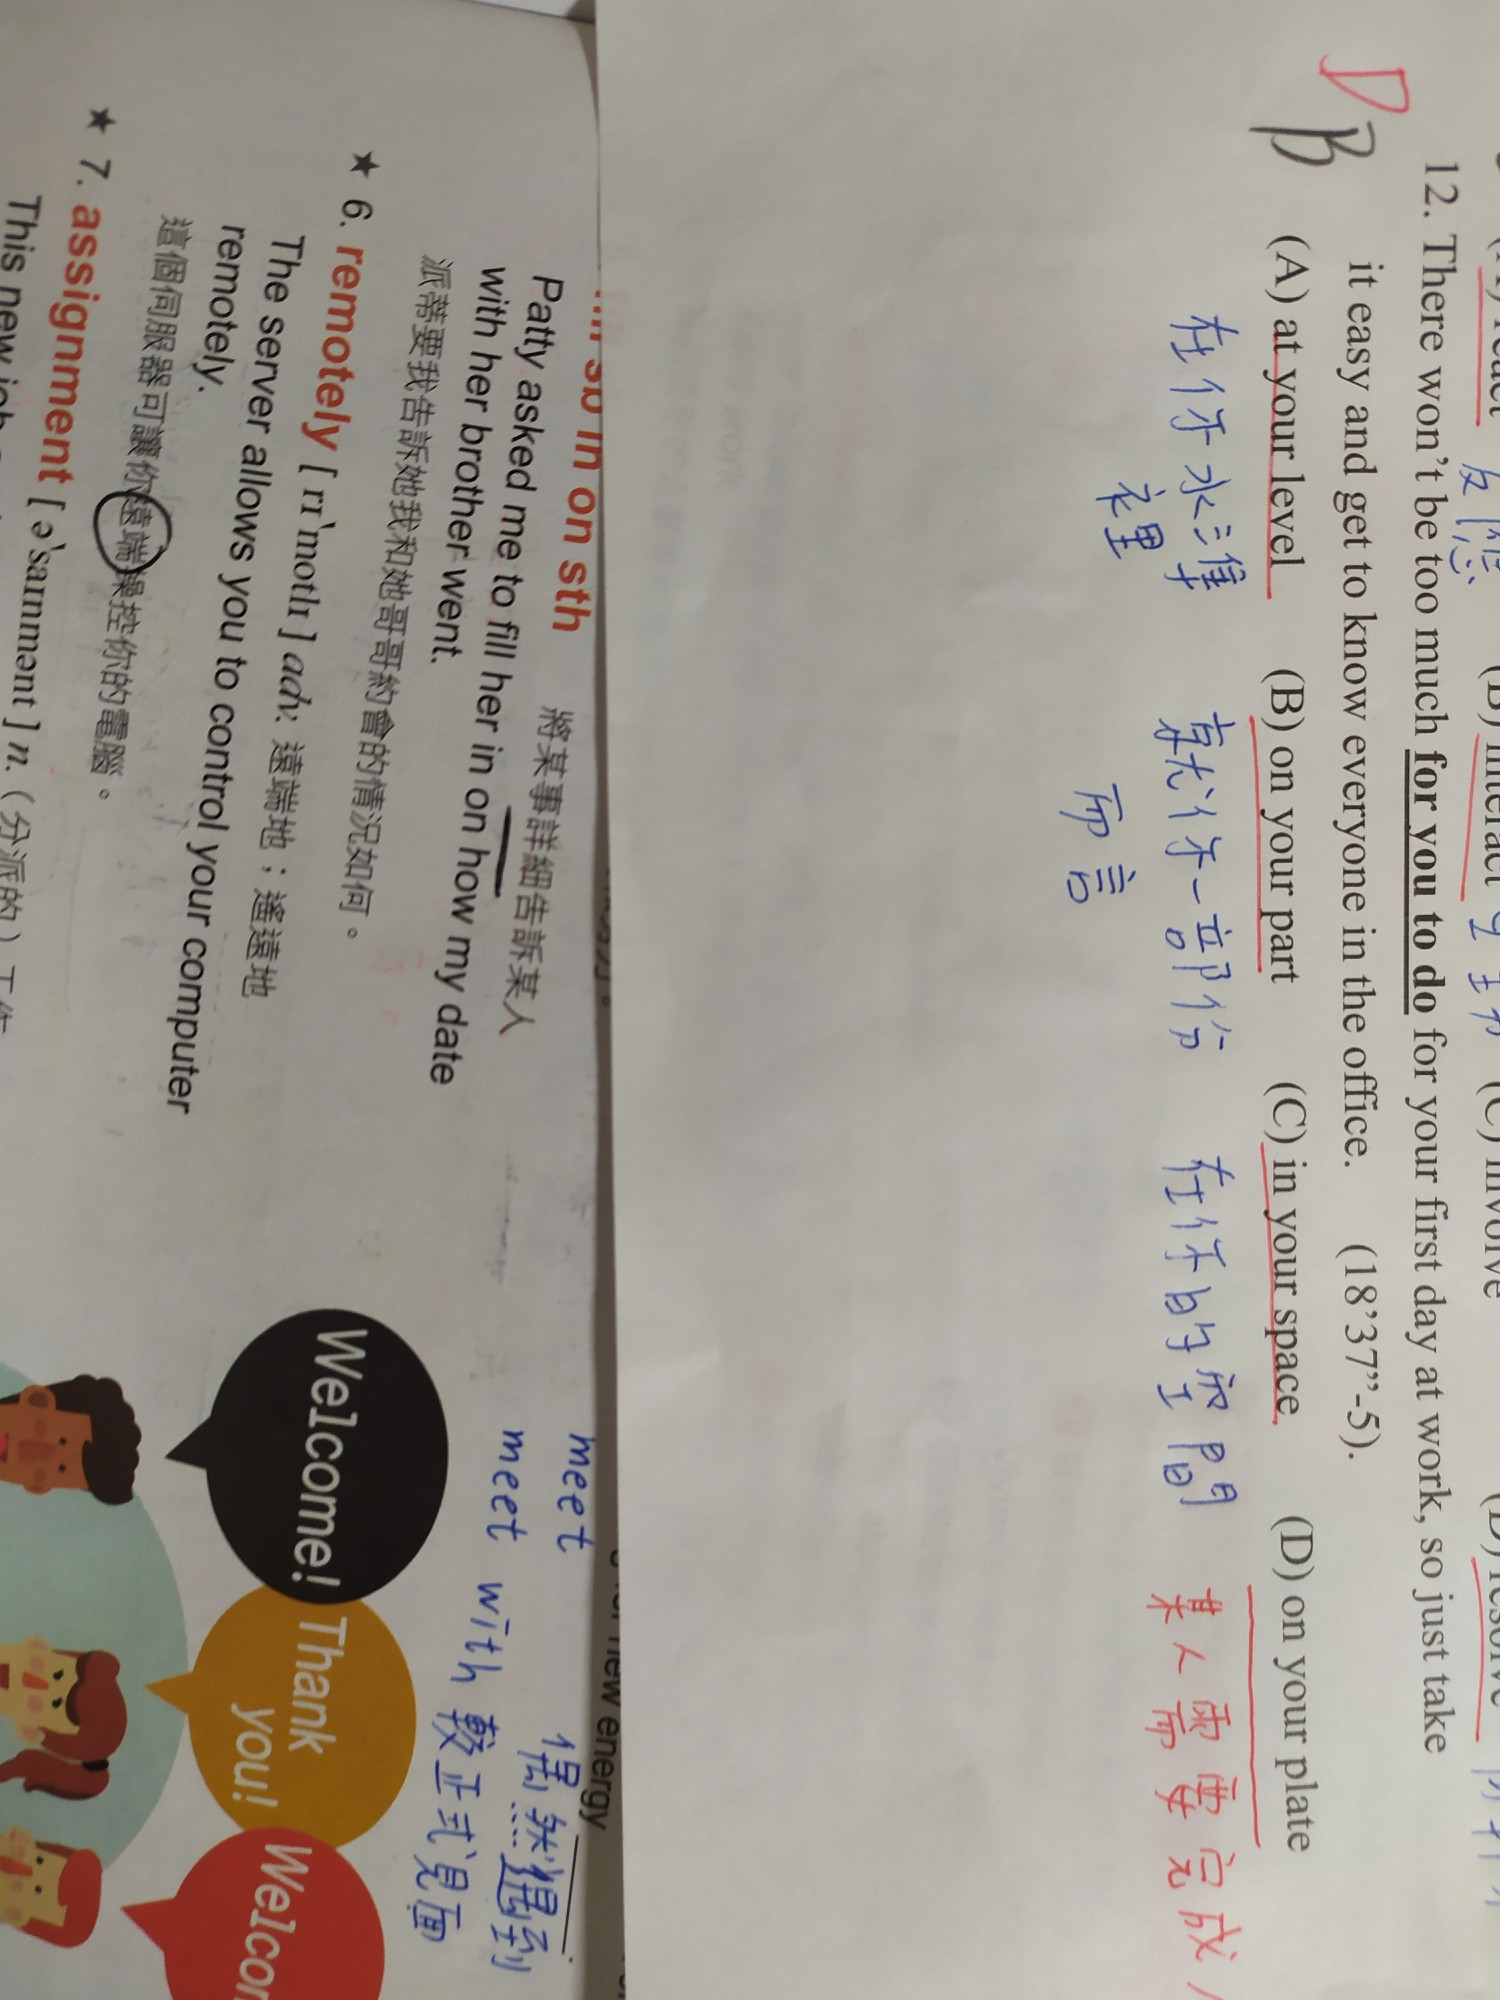 (B) interact
(C) involve
(D) resolve
12. There won't be too much for you to do for your first day at work, so just take
it easy and get to know everyone in the office. (18'37”-5).
D
B
(A) at your level (B) on your part (C) in your space (D) on your plate
在你水準
裡
就你一部份
而言
在你的空間
某人需要完成
sb in on sth 將某事詳細告訴某人
Patty asked me to fill her in on how my date
with her brother went.
派蒂要我告訴她我和她哥哥約會的情況如何。
★ 6. remotely [ rɪˋmotlɪ ] adv. 遠端地；遙遠地
The server allows you to control your computer
remotely.
這個伺服器可讓你遠端操控你的電腦。
★ 7. assignment [ əˋsaɪnmənt ] n.（分派的）工作
This new job
new energy
meet 偶然遇到
meet with 較正式見面
Welcome!
Thank
you!
Welcom